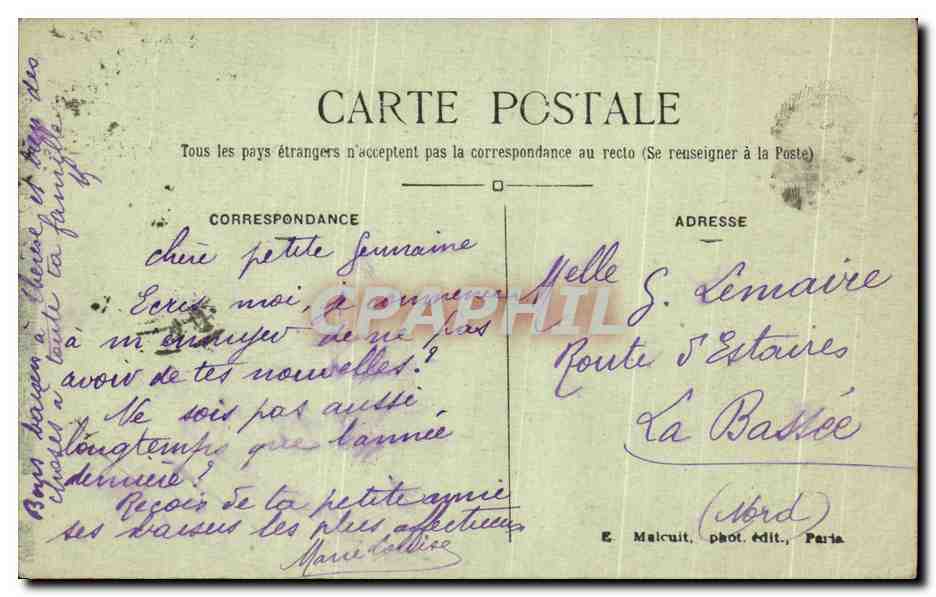 CARTE POSTALE
Tous les pays étrangers n'acceptent pas la correspondance au recto (Se renseigner à la Poste)
CORRESPONDANCE
chère petite Germaine
Ecris moi, je commence
à m'ennuyer de ne pas
avoir de tes nouvelles?
Ne sois pas aussi
longtemps que l'année
dernière?
Reçois de ta petite amie
ses baisers les plus affectueux
Marie Louise
Bons baisers à Thérèse et bien des
choses à toute ta famille
ADRESSE
Melle G. Lemaire
Route d'Estaires
La Bassée
(Nord)
E. Malcuit, phot. édit., Paris
CPAPHIL